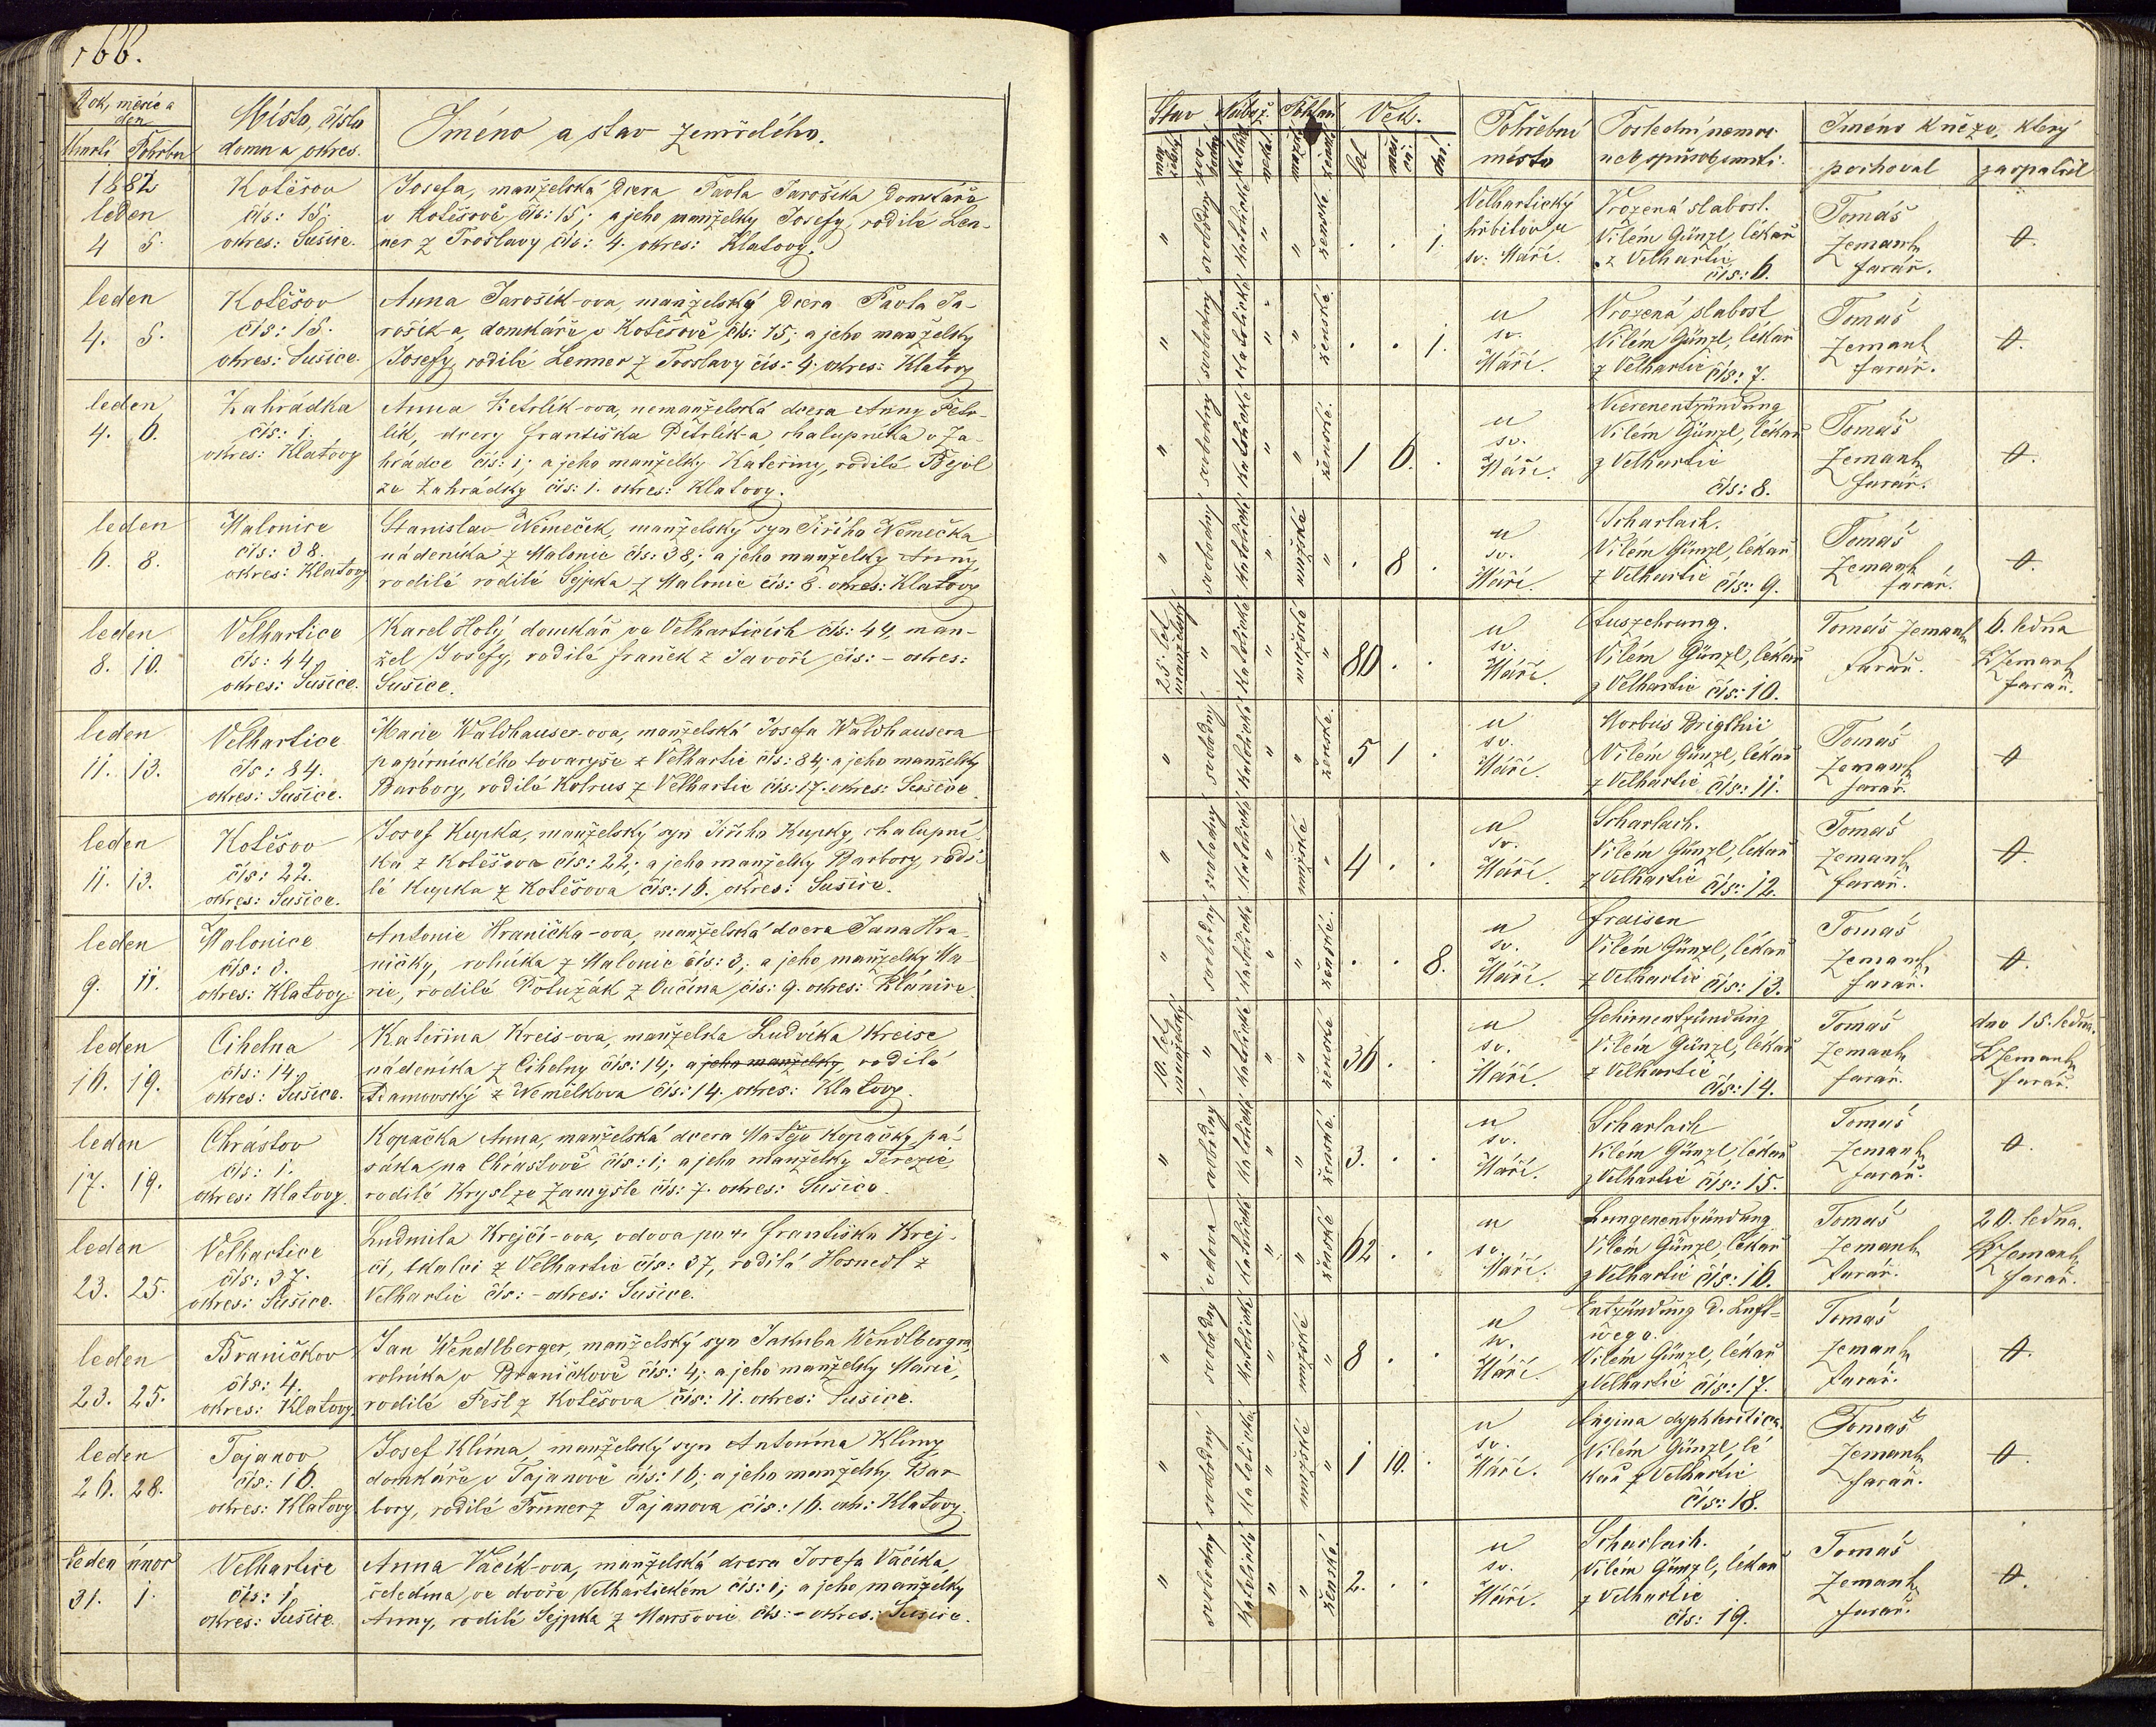 166.
Rok, měsíc a den
Umrtí Pohřbu
Místo, číslo
domu a okres.
Jméno a stav zemřelého.
1882
leden
4 5.
Kotěšov
čís: 15.
okres: Sušice.
Josefa, manželská dcera Pavla Jarošíka domkáře
v Kotěšově čís: 15; a jeho manželky Josefy, rodilé Len-
ner z Troslavy čís: 4. okres: Klatovy.
leden
4. 5.
Kotěšov
čís: 15.
okres: Sušice.
Anna Jarošík-ova, manželský dcera Pavla Ja-
rošík-a, domkáře v Kotěšově čís: 15; a jeho manželky
Josefy, rodilé Lenner z Troslavy čís: 4. okres: Klatovy
leden
4. 6.
Zahrádka
čís: 1.
okres: Klatovy
Anna Petrlík-ova, nemanželská dcera Anny Petr-
lík, dcery Františka Petrlík-a, chalupníka v Za-
hrádce čís: 1; a jeho manželky Kateřiny, rodilé Bejvl
ze Zahrádky čís: 1. okres: Klatovy.
leden
6. 8.
Malonice
čís: 38.
okres: Klatovy
Stanislav Němeček, manželský syn Jiřího Němečka
nádeníka z Malonic čís: 38; a jeho manželky Anny,
rodilé rodilé Sejpka z Malonic čís: 8. okres: Klatovy
leden
8. 10.
Velhartice
čís: 44.
okres: Sušice.
Karel Holý, domkář ve Velharticích čís: 44, man-
žel Josefy, rodilé Franěk z Javoří čís: - okres:
Sušice.
leden
11. 13.
Velhartice
čís: 84.
okres: Sušice.
Marie Waldhauser-ova, manželská Josefa Waldhausera
papírnického tovaryše z Velhartic čís: 84; a jeho manželky
Barbory, rodilé Kotrus z Velhartic čís: 17. okres: Sušice
leden
11. 13.
Kotěšov
čís: 22.
okres: Sušice.
Josef Kupka, manželský syn Jiřího Kupky, chalupní-
ka z Kotěšova čís: 22; a jeho manželky Barbory, rodi-
lé Kupka z Kotěšova čís: 16. okres: Sušice.
leden
9. 11.
Malonice
čís: 3.
okres: Klatovy.
Antonie Hranička-ova, manželská dcera Jana Hra-
ničky, rolníka z Malonic čís: 3; a jeho manželky Ma-
rie, rodilé Potužák z Oučína čís: 9. okres: Plánice.
leden
16. 19.
Cihelna
čís: 14.
okres: Sušice.
Kateřina Kreis-ova, manželka Ludvíka Kreise
nádeníka z Cihelny čís: 14; a jeho manželky, rodilá
Adamovský z Nemělkova čís: 14. okres: Klatovy.
leden
17. 19.
Chrástov
čís: 1.
okres: Klatovy.
Kopačka Anna, manželská dcera Matěje Kopačky pa-
sáka na Chrástově čís: 1; a jeho manželky Terezie,
rodilé Krysl ze Zamyšle čís: 7. okres: Sušice
leden
23. 25.
Velhartice
čís: 37.
okres: Sušice.
Ludmila Krejčí-ova, vdova po Františku Krej-
čí, tkalci z Velhartic čís: 37, rodilá Hosnedl z
Velhartic čís: - okres: Sušice.
leden
23. 25.
Braničkov
čís: 4.
okres: Klatovy.
Jan Wendlberger, manželský syn Jakuba Wendlbergra
rolníka v Braničkově čís: 4; a jeho manželky Marie,
rodilé Fešl z Kotěšova čís: 11. okres: Sušice.
leden
26. 28.
Tajanov
čís: 16.
okres: Klatovy.
Josef Klíma, manželský syn Antonína Klímy,
domkáře v Tajanově čís: 16; a jeho manželky Bar-
bory, rodilé Trimer z Tajanova čís: 16. okr: Klatovy
leden únor
31. 1.
Velhartice
čís: 1.
okres: Sušice.
Anna Vacík-ova, manželská dcera Josefa Vacíka,
čeledína ve dvoře Velhartickém čís: 1; a jeho manželky
Anny, rodilé Sejpka z Maršovic čís: - okres: Sušice.
Stav Nábož. Pohlaví Věk.
let měsíců dní
Pohřební
místo
Poslední nemoc
neb spůsob smrti.
Jméno kněze, který
pochoval zaopatřil
" svobodný katolické " " ženské . . 1.
Velhartický
hřbitov u
sv: Máří.
Vrozená slabost.
Vilém Günzl, lékař
z Velhartic
čís: 6.
Tomáš
Zemank
farář.
0.
" svobodný katolické " " ženské . . 1.
u
sv.
Máří.
Vrozená slabost
Vilém Günzl, lékař
z Velhartic čís: 7.
Tomáš
Zemank
farář.
0.
" svobodný katolické " " ženské. 1 6. .
u
sv.
Máří.
Nierenentzündung
Vilém Günzl, lékař
z Velhartic
čís: 8.
Tomáš
Zemank
farář.
0.
" svobodný katolické " mužské " . 8 .
u
sv.
Máří.
Scharlach.
Vilém Günzl, lékař
z Velhartic čís: 9.
Tomáš
Zemank
farář.
0.
25. let manželský " katolické " mužské " 80 . .
u
sv.
Máří.
Auszehrung.
Vilém Günzl, lékař
z Velhartic čís: 10.
Tomáš Zemank
farář.
6. ledna
Zemank
farář.
" svobodný katolické " " ženské. 5 1 .
u
sv.
Máří.
Morbus Brigthii
Vilém Günzl, lékař
z Velhartic čís: 11.
Tomáš
Zemank
farář.
0
" svobodný katolické " mužské " 4 . .
u
sv.
Máří.
Scharlach.
Vilém Günzl, lékař
z Velhartic čís: 12.
Tomáš
Zemank
farář.
0.
" svobodný katolické " " ženské. . . 8.
u
sv.
Máří.
Fraisen
Vilém Günzl, lékař
z Velhartic čís: 13.
Tomáš
Zemank
farář.
0.
10. let manželský " katolické " " ženské 36 . .
u
sv.
Máří.
Gehirnentzündung
Vilém Günzl, lékař
z Velhartic
čís: 14.
Tomáš
Zemank
farář.
dne 15. ledna.
Zemank
farář.
" svobodný katolické " " ženské. 3. . .
u
sv.
Máří.
Scharlach
Vilém Günzl, lékař
z Velhartic čís: 15.
Tomáš
Zemank
farář.
0.
" vdova katolické " " ženské 62 . .
u
sv.
Máří.
Lungenentzündung
Vilém Günzl, lékař
z Velhartic čís: 16.
Tomáš
Zemank
farář.
20. ledna.
Zemank
farář.
" svobodný katolické " mužské " 8 . .
u
sv.
Máří.
Entzündung d. Luft-
wege.
Vilém Günzl, lékař
z Velhartic čís: 17.
Tomáš
Zemank
farář.
0.
" svobodný katolické " mužské " 1 10. .
u
sv.
Máří.
Angina dyphteritica.
Vilém Günzl, lé
kař z Velhartic
čís: 18.
Tomáš
Zemank
farář.
0.
" svobodný katolické " " ženské 2. . .
u
sv.
Máří.
Scharlach.
Vilém Günzl, lékař
z Velhartic
čís: 19.
Tomáš
Zemank
farář.
0.